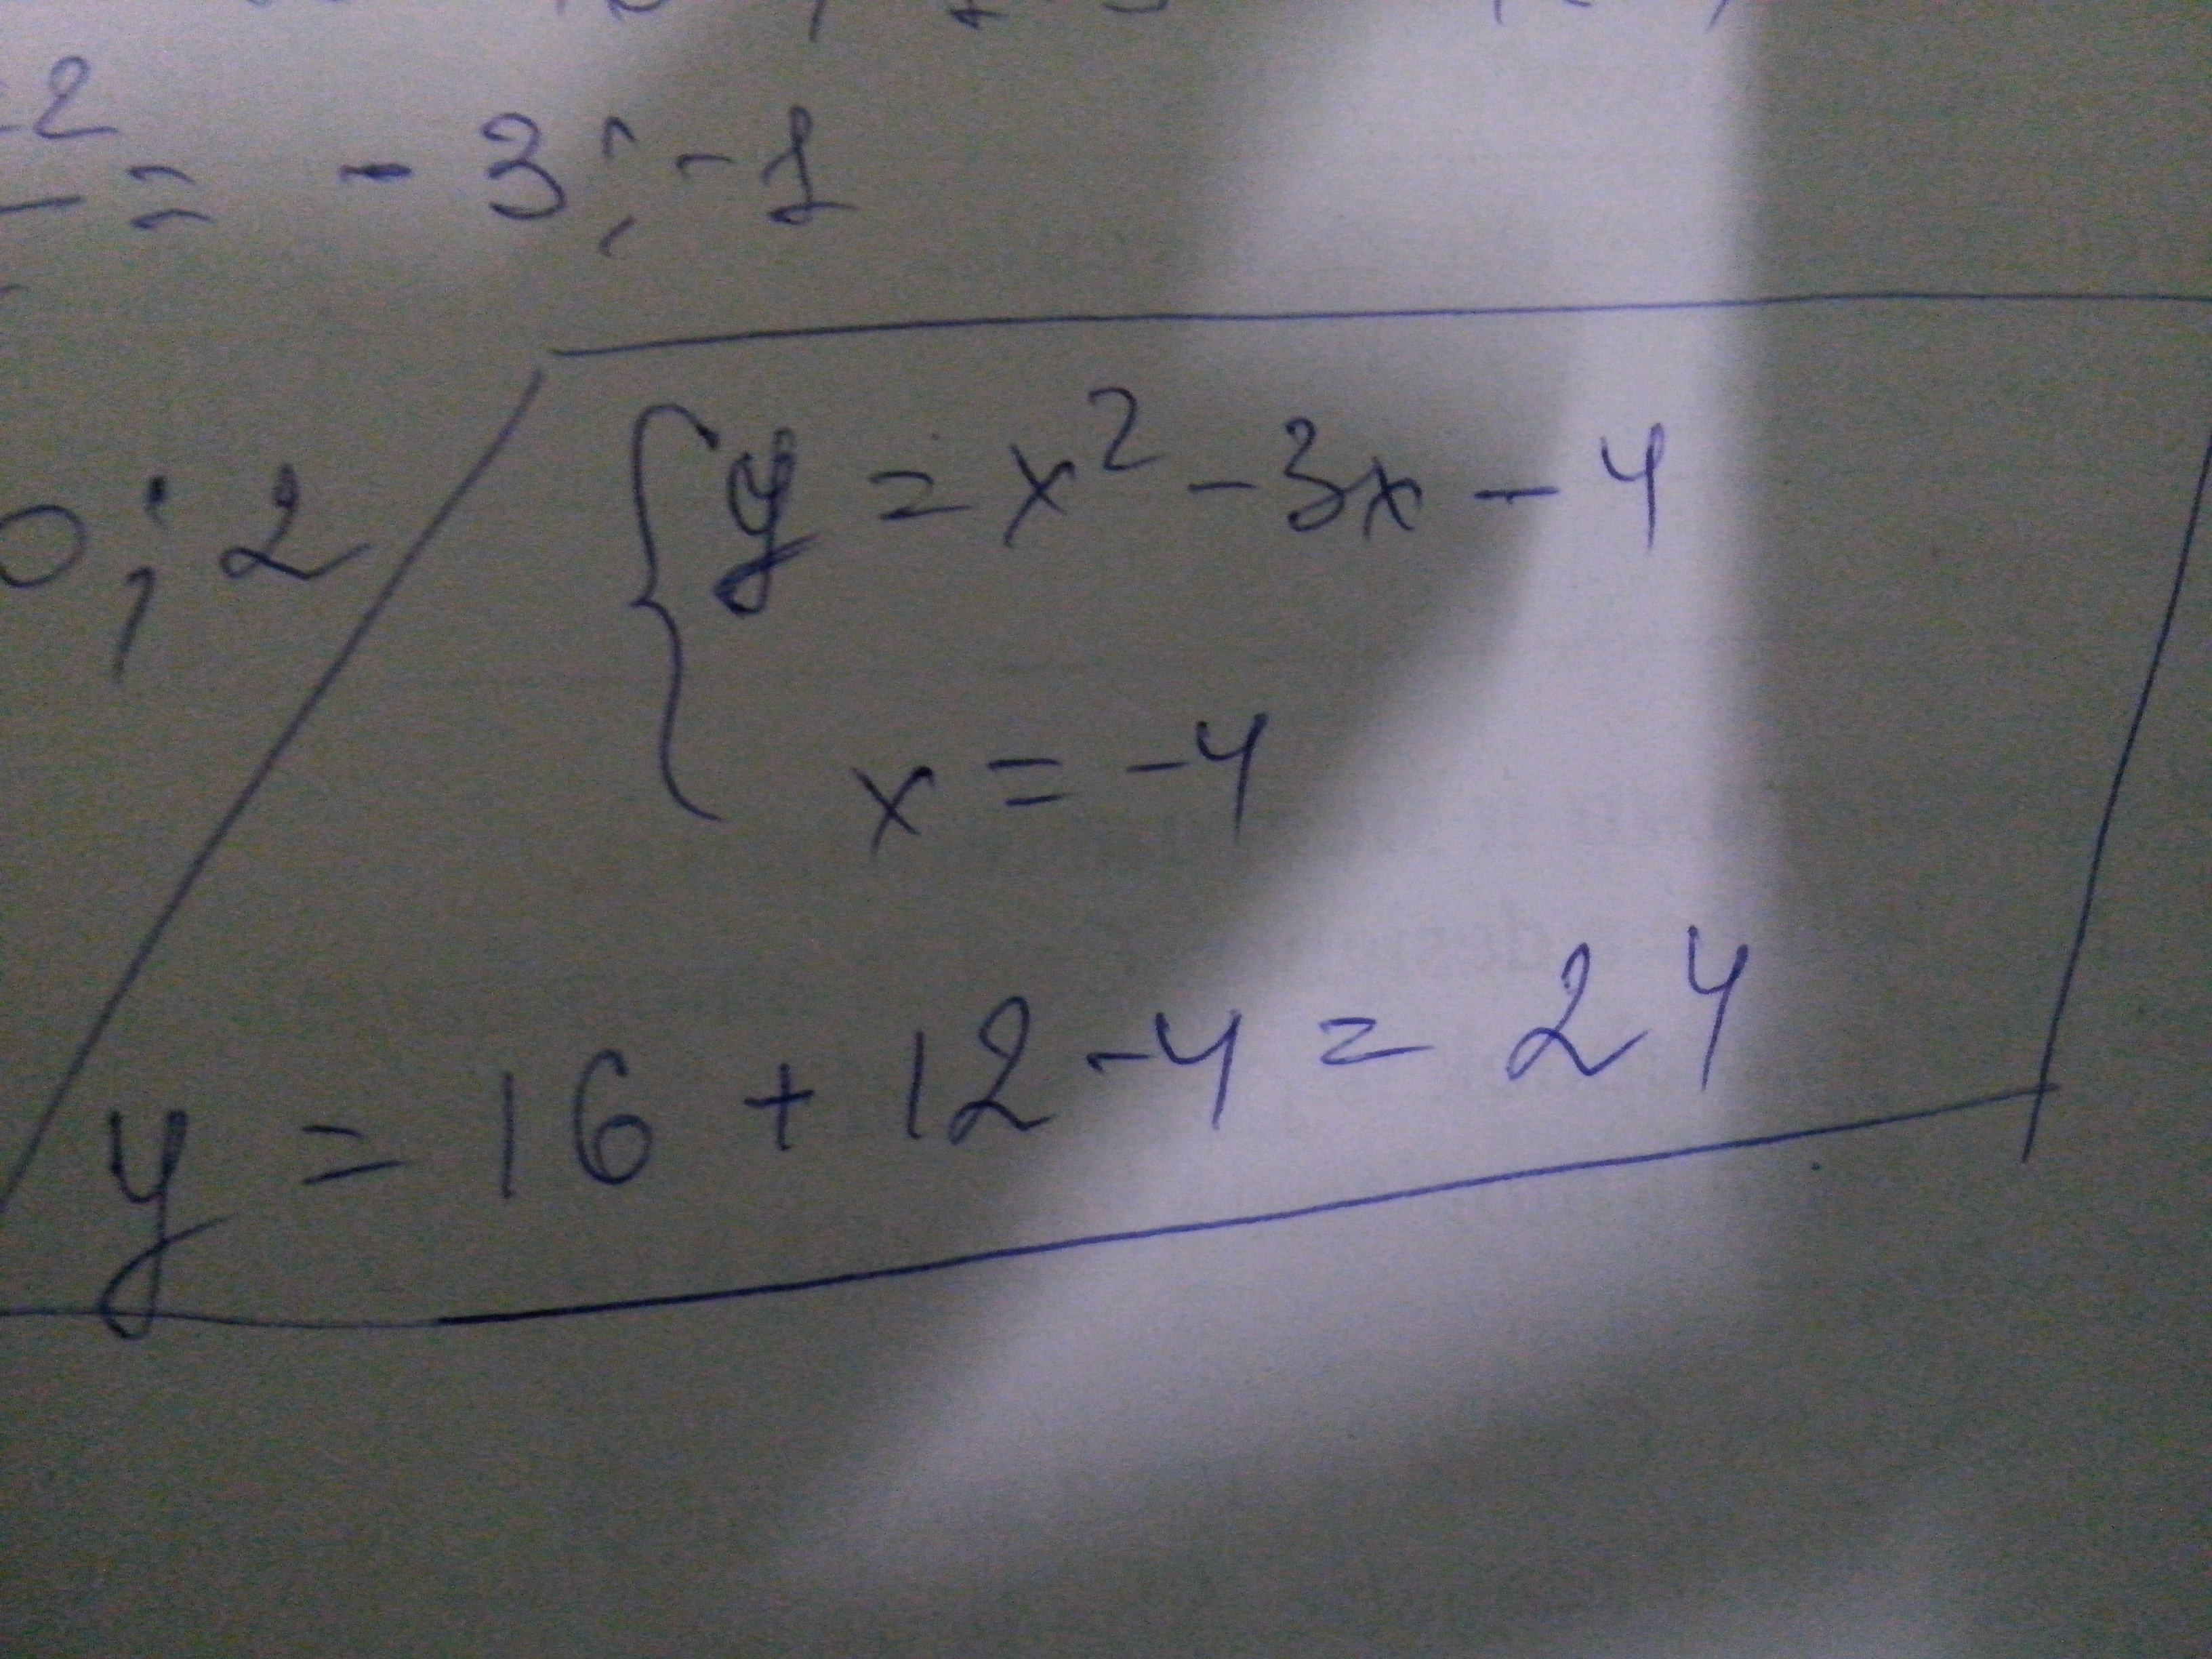 -2 = - 3 ; - 1
0 ; 2
y = x² - 3x - 4
x = -4
y = 16 + 12 - 4 = 24